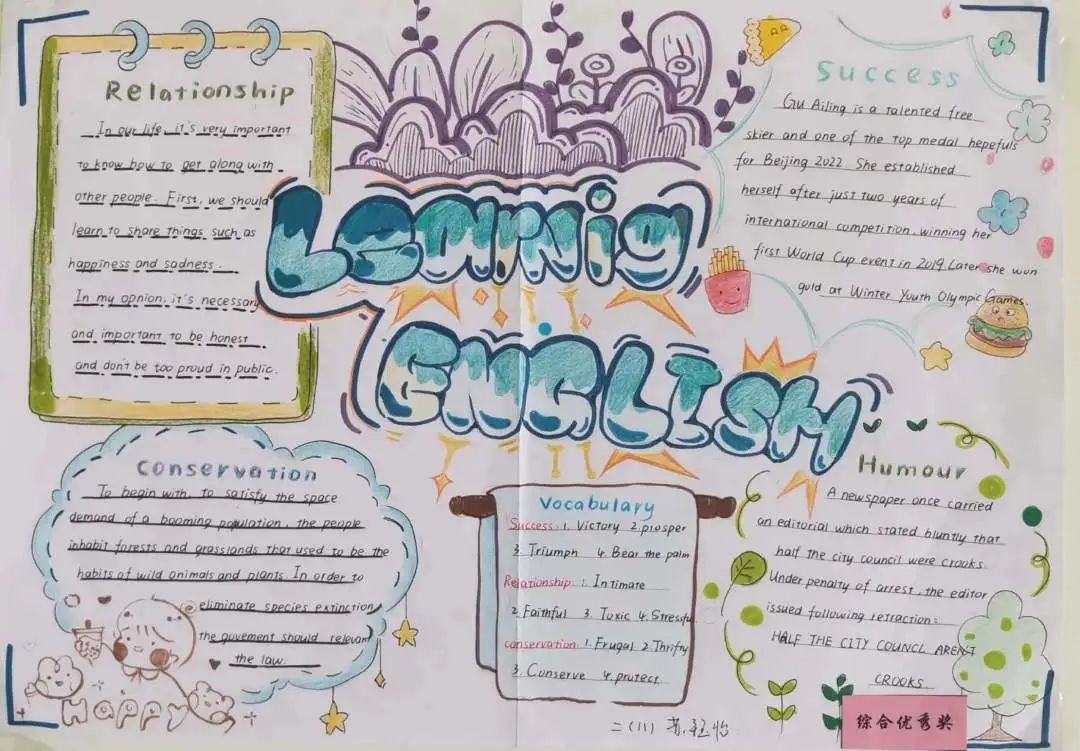 Learnig
ENGLISH
Relationship
In our life, it's very important
to know how to get along with
other people. First, we should
learn to share things such as
happiness and sadness.
In my opnion, it's necessary
and important to be honest
and don't be too proud in public.
Success
Gu Ailing is a talented free
skier and one of the top medal hepefuls
for Beijing 2022. She established
herself after just two years of
international competition, winning her
first World Cup event in 2019. Later she won
guld at Winter Youth Olympic Games.
Conservation
To begin with, to satisfy the space
demand of a booming population, the people
inhabit forests and grasslands that used to be the
habits of wild animals and plants. In order to
eliminate species extinction
the guvement should relevant
the law.
Happy
Vocabulary
Success: 1. Victory 2. prosper
3. Triumph 4. Bear the palm
Relationship: 1. Intimate
2. Faithful 3. Toxic 4. Stressful
conservation: 1. Frugal 2. Thrifty
3. Conserve 4. protect
Humour
A newspaper once carried
an editorial which stated bluntly that
half the city council were crooks.
Under penalty of arrest, the editor
issued following retraction:
HALF THE CITY COUNCL AREN'T
CROOKS.
二(11) 怡
综合优秀奖